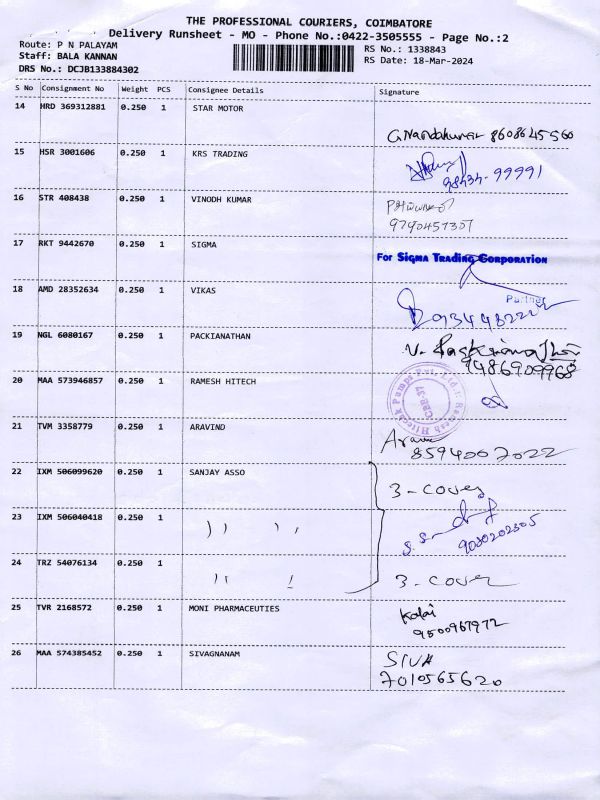 THE PROFESSIONAL COURIERS, COIMBATORE
Delivery Runsheet - MO - Phone No.:0422-3505555 - Page No.:2
Route: P N PALAYAM
Staff: BALA KANNAN
DRS No.: DCJB133884302
RS No.: 1338843
RS Date: 18-Mar-2024
S No Consignment No Weight PCS Consignee Details Signature
14 HRD 369312881 0.250 1 STAR MOTOR
G.Nandakumar 8608645560
15 HSR 3001606 0.250 1 KRS TRADING
98434-99991
16 STR 408438 0.250 1 VINODH KUMAR
9790457307
17 RKT 9442670 0.250 1 SIGMA
For SIGMA TRADING CORPORATION
Partner
18 AMD 28352634 0.250 1 VIKAS
19 NGL 6080167 0.250 1 PACKIANATHAN
V. Packianathan
9486909968
20 MAA 573946857 0.250 1 RAMESH HITECH
21 TVM 3358779 0.250 1 ARAVIND
8594007022
22 IXM 506099620 0.250 1 SANJAY ASSO
3-cover
23 IXM 506040418 0.250 1 )) ))
9080202605
24 TRZ 54076134 0.250 1
3-cover
25 TVR 2168572 0.250 1 MONI PHARMACEUTIES
Kalai
9500967972
26 MAA 574385452 0.250 1 SIVAGNANAM
SIVA
7010565620